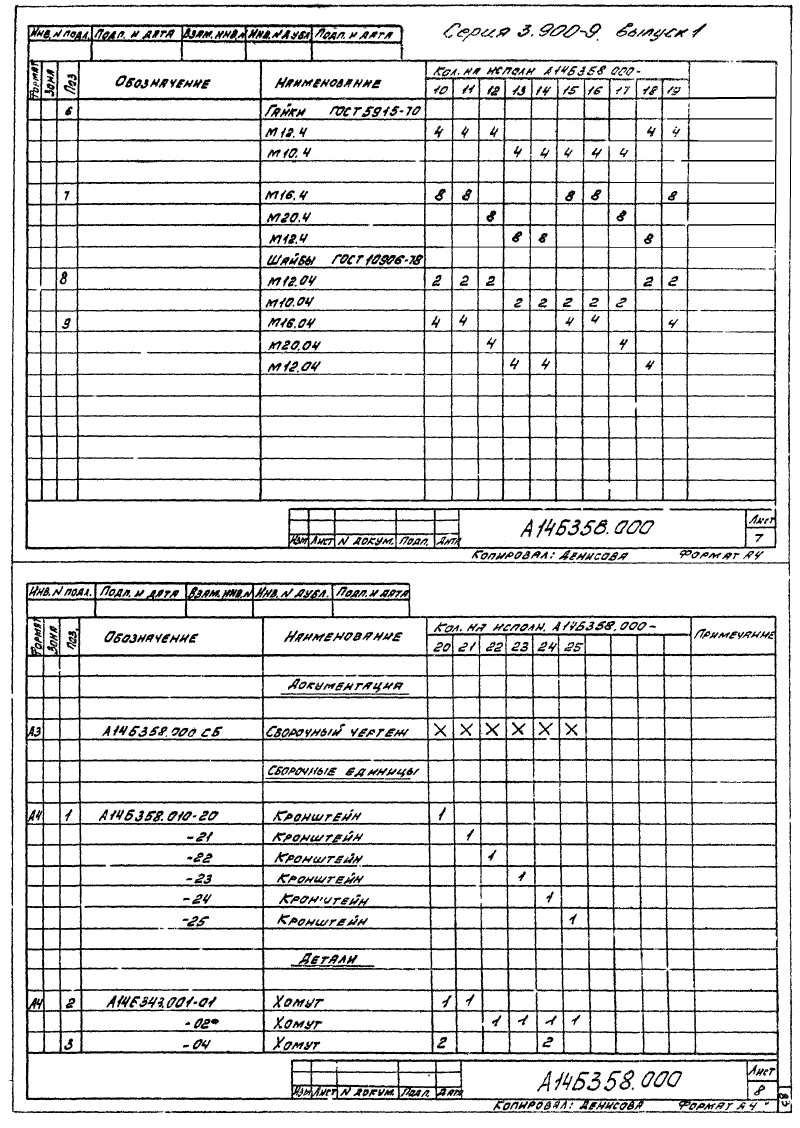 Серия 3.900-9. Выпуск 1
Инв. N подл. Подп. и дата Взам. инв. N Инв. N дубл. Подп. и дата
Формат Зона Поз. Обозначение Наименование Кол. на исполн А14Б358.000-
10 11 12 13 14 15 16 17 18 19
6 Гайки ГОСТ 5915-70
М12.4 4 4 4 4 4
М10.4 4 4 4 4 4
7 М16.4 8 8 8 8 8
М20.4 8 8
М12.4 8 8 8
Шайбы ГОСТ 10906-78
8 М12.04 2 2 2 2 2
М10.04 2 2 2 2 2
9 М16.04 4 4 4 4 4
М20.04 4 4
М12.04 4 4 4
А14Б358.000
Лист
7
Изм Лист N докум. Подп. Дата
Копировал: Денисова Формат А4
Инв. N подл. Подп. и дата Взам. инв. N Инв. N дубл. Подп. и дата
Формат Зона Поз. Обозначение Наименование Кол. на исполн. А14Б358.000- Примечание
20 21 22 23 24 25
Документация
А3 А14Б358.000 СБ Сборочный чертеж X X X X X X
Сборочные единицы
А4 1 А14Б358.010-20 Кронштейн 1
-21 Кронштейн 1
-22 Кронштейн 1
-23 Кронштейн 1
-24 Кронштейн 1
-25 Кронштейн 1
Детали
А4 2 А14Б343.001-01 Хомут 1 1
-02 Хомут 1 1 1 1
3 -04 Хомут 2 2
А14Б358.000
Лист
8
Изм Лист N докум. Подп. Дата
Копировал: Денисова Формат А4